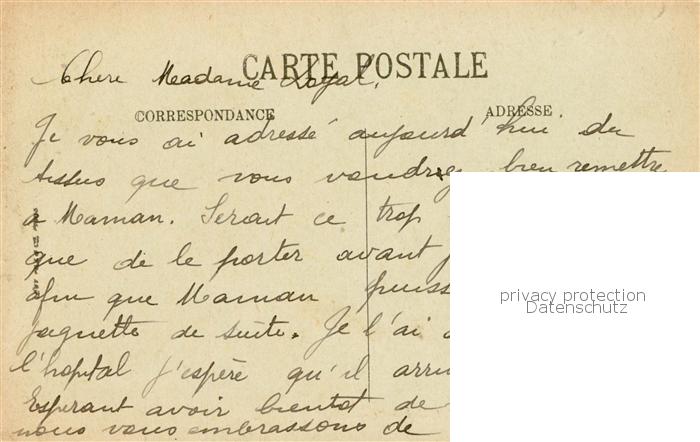 CARTE POSTALE
Chere Madame Loyal,
CORRESPONDANCE
ADRESSE
Je vous ai adressé aujourd'hui du
tissus que vous voudrez bien remettre
a Maman. Serait ce trop
que de le porter avant
afin que Maman puiss
jaquette de suite. Je l'ai
l'hopital j'espère qu'il arri
Esperant avoir bientot de
nous vous embrassons de
privacy protection
Datenschutz